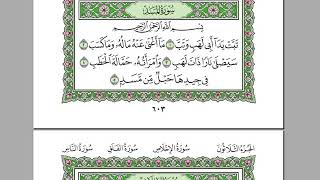 سُورَةُ المَسَد
بِسْمِ اللَّهِ الرَّحْمَٰنِ الرَّحِيمِ
تَبَّتْ يَدَا أَبِي لَهَبٍ وَتَبَّ ١ مَا أَغْنَىٰ عَنْهُ مَالُهُ وَمَا كَسَبَ ٢
سَيَصْلَىٰ نَارًا ذَاتَ لَهَبٍ ٣ وَامْرَأَتُهُ حَمَّالَةَ الْحَطَبِ ٤
فِي جِيدِهَا حَبْلٌ مِّن مَّسَدٍ ٥
٦٠٣
الجُزءُ الثَّلَاثُونَ سُورَةُ الإِخْلَاصِ سُورَةُ الفَلَقِ سُورَةُ النَّاسِ